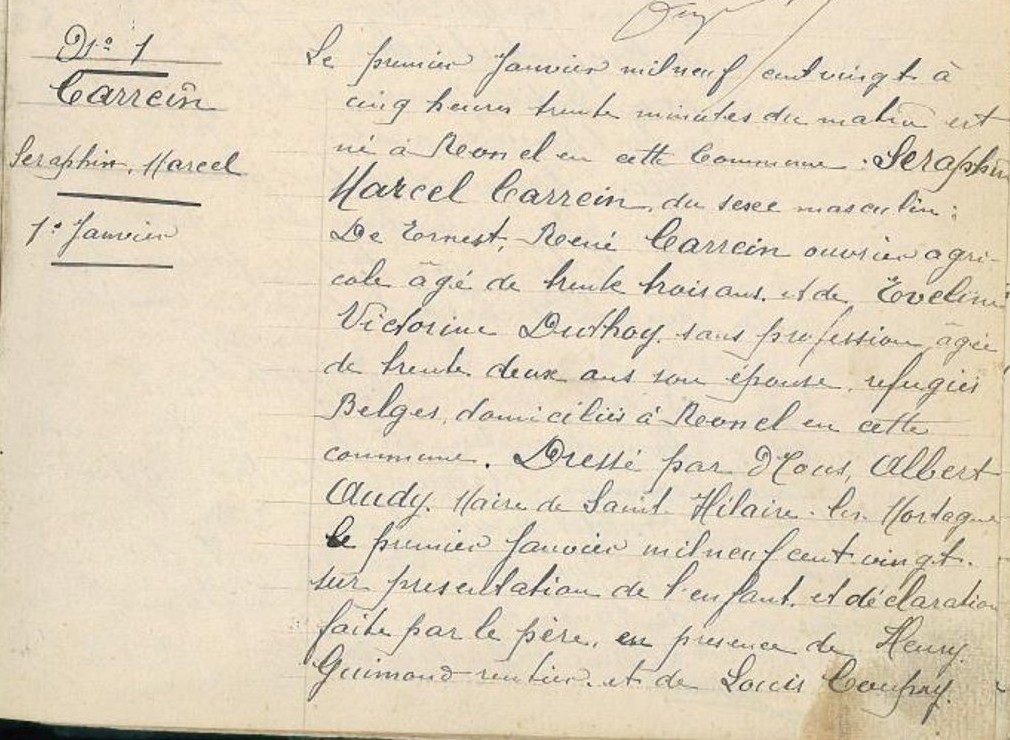 N.º 1
Carrein
Seraphin, Marcel
1.º Janvier
Le premier Janvier mil neuf cent vingt à
cinq heures trente minutes du matin est
né à Reonel en cette Commune. Seraphin
Marcel Carrein, du sexe masculin;
De Ernest, René Carrein ouvrier agri-
cole âgé de trente trois ans, et de Eveline
Victorine Duthoy, sans profession, âgée
de trente deux ans son épouse, refugiés
Belges, domiciliés à Reonel en cette
commune. Dressé par Nous, Albert
Audy, Maire de Saint Hilaire-les-Mortagne
le premier Janvier mil neuf cent vingt.
sur presentation de l'enfant, et déclaration
faite par le père, en presence de Henry
Guimond rentier, et de Louis